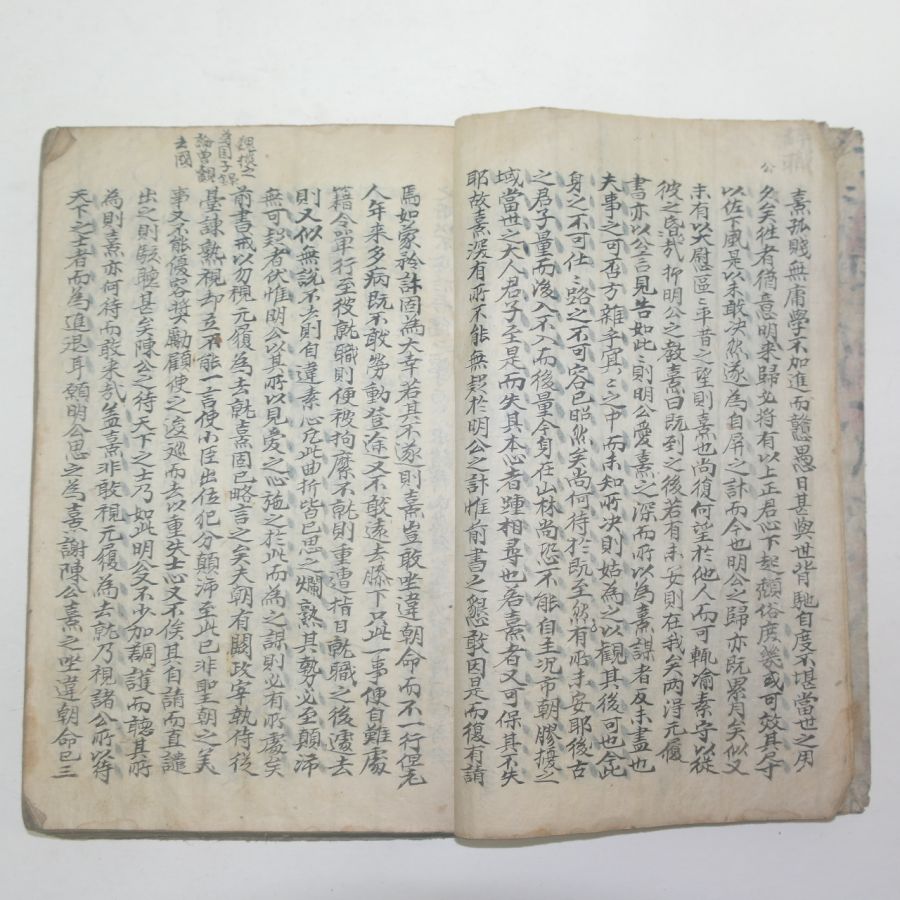 公
熹孤賤無庸學不加進而戇愚日甚與世背馳自度不堪當世之用
久矣往者猶意明公來歸必將有以上正君心下起頹俗庶幾或可效其尺寸
以佐下風是以未敢决然遂為自屏之計而今也明公之歸亦既累月矣似又
未有以大慰區〻平昔之望則熹也尚復何望於他人而可輒渝素守以從
彼之昏哉抑明公之教熹曰既到之後若有未安則在我矣两淂元履
書亦以公言見告如此則明公愛熹之深而所以為熹謀者反未盡也
夫事之可否方雜乎冥〻之中而未知所决則姑為之以觀其後可也今此
身之不可仕〻路之不可容已昭然矣尚何待於既至然後有所未安耶古
之君子量而後入不入而後量今身在山林尚恐不能自主况市朝膠擾之
域當世之大人君子至是而失其本心者踵相尋也若熹者又可保其不失
耶故熹深有所不能無疑於明公之計惟前書之懇敢因是而復有請
焉如蒙矜許固為大幸若其不遂則熹豈敢坐違朝命而不一行但老
人年來多病既不敢勞動登途又不敢遠去膝下只此一事便自難處
籍令單行至彼就職則便被拘縻不就則重遭指目就職之後遽去
則又似無說不去則自違素心凡此曲折皆已思之爛熟其勢必至顛沛
無可疑者伏惟明公以其所以見愛之心施之於此而為之謀則必有所處矣
前書戒以勿視元履為去就熹固已略言之矣夫朝有闕政宰執侍從
臺諫熟視却立不能一言使小臣出位犯分顛沛至此已非聖朝之美
事又不能優容奬勵顧使之逡巡而去以重失士心又不俟其自請而直譴
出之則駭聽甚矣陳公之待天下之士乃如此明公又不少加調護而聽其所
為則熹亦何待而敢來哉盖熹非敢視元履為去就乃視諸公所以待
天下之士者而為進退耳願明公思之為熹謝陳公熹之坐違朝命已三
魏掞之
為國子錄
論曾覿
去國